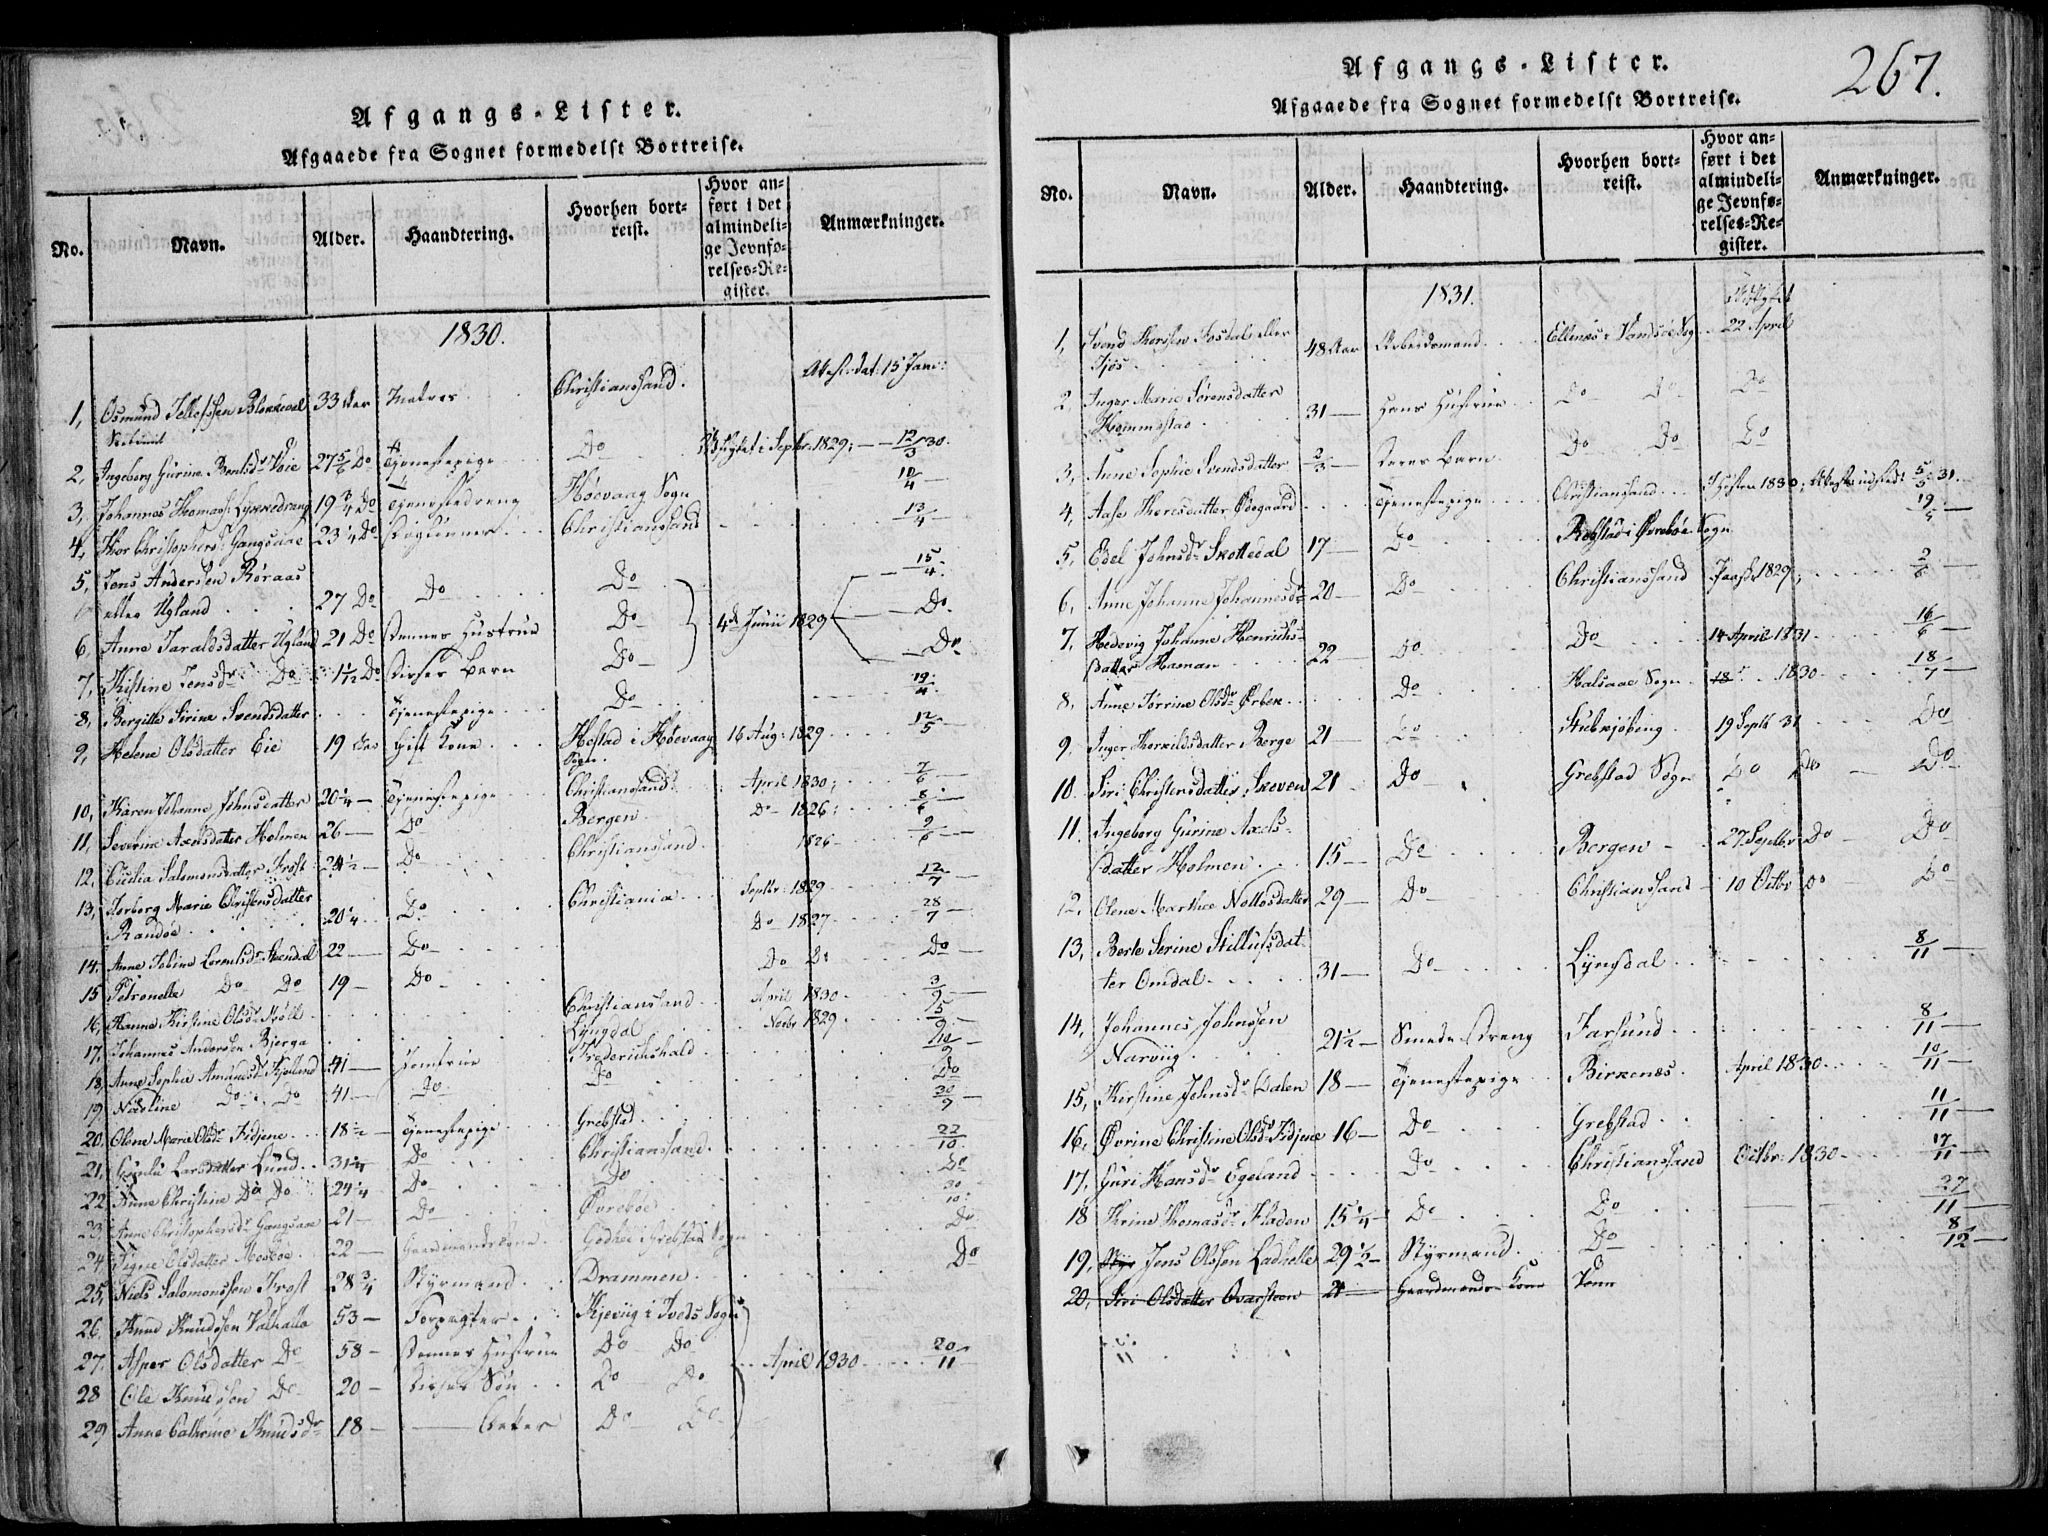 Afgangs-Lister.
Afgaaede fra Sognet formedelst Bortreise.
No. Navn. Alder. Haandtering. Hvorhen bortreist. Hvor anført i det almindelige Jevnførelses-Register. Anmærkninger.
1830.
1, Osmund Tellefssen 33 Aar Matros Christianssand. 15 Jan:
2, Ingeborg Gurine Berntsdr Voie 27 5/6 Do Tjenestepige Do Septbr. 1829; 12/3 30.
3, Johannes Thomass. Lykkedrang 19 3/4 Do Tjenestedreng Høevaag Sogn 10/4
4, Thor Christophers: Gangsaae 23 1/4 Do Christianssand 13/4
5, Jens Andersen Røraas
eller Ugland 27 Do Do Do 15/4
6 Anne Taraldsdatter Ugland 21 Do Dennes Hustrue Do 4de Junii 1829 Do
7, Kistine Jensdr Do 1 1/12 Do Disses Barn Do Do
8, Bergitte Sirine Svendsdatter Tjenestepige Do 19/4
9, Helene Olsdatter Eie 19 Aar Gift Kone Hestad i Høevaag Sogn. 16 Aug: 1829 12/5
10, Karen Johanne Johnsdatter 20 1/4 Tjenestepige Christianssand April 1830; 7/6
11, Severine Axelsdatter Holmen 26 Do Bergen Do 1826; 8/6
12, Cicilia Salomonsdatter Frøst 24 1/2 Do Christianssand 1826 9/6
13, Torborg Marie Christensdatter
Randøe 20 1/4 Do Christiania Septbr: 1829 12/7
14. Anne Tobine 22 Do Do 1827 28/7
15 Petronelle Do Do 19 Do Do Do Do
16, Hanne Kirstine Olsdr Christianssand April 1830 3/9
17, Johannes Andersen Bjerga Lyngdal Novbr 1829 5/9
18, Anne Sophie Amundsdr 41 Jomfrue Frederikshald 10/9
19 Nicoline Do Do 41 Do Do Do
20. Olene Marie Olsdr Fidjene 18 1/2 Tjenestepige Grebstad 30/9
21, Gunlu Larsdatter Lund 31 1/4 Do Christianssand 22/10
22 Anne Christine Do Do 24 1/4 Do Do Do
23, Anne Christophersdr Gangsaae 21 Do Øvrebøe 30/10
24 Signe Olsdatter 22 Gaardmandskone Godhei i Grebstad Sogn Do
25, Niels Salomonssen Frøst 28 3/4 Styrmand Drammen Do
26. Knud Knudssen Valhalla 53 Forpagter Kjeviig i Tveds Sogn
27. Asper Olsdatter Do 58 Dennes Hustrue Do Do April 1830 20/11
28 Ole Knudssen Do 20 Disses Søn Do Do
29 Anne Cathrine Knudsdr 18 Datter Do Do
Afgangs-Lister.
267.
Afgaaede fra Sognet formedelst Bortreise.
No. Navn. Alder. Haandtering. Hvorhen bortreist. Hvor anført i det almindelige Jevnførelses-Register. Anmærkninger.
1831.
1, Svend Thorsen Fosdal eller
Tjøs 48 Aar Arbeidsmand 22 April
2, Inger Marie Sørensdatter
Hommestad 31 Hans Hustrue Do Do Do
3, Anne Sophie Svendsdatter 2/3 Deres Barn Do Do Do
4, Aase Theresdatter Ødegaard Tjenestepige Christianssand Høsten 1830; 5/5 31.
5, Edel Johnsdr Skottedal 17 Do Robstad i Øvrebøe Sogn 19/5
6, Anne Johanne Johannesdr 20 Do Christianssand 1829; 2/6
7, Hedevig Johanne Henrichs-
datter Haman 22 Do Do 14 April 1831 16/6
8, Anne Torrine Olsdr Ørbek Do Halsaae Sogn 18 1830 18/7
9. Inger Therkildsdatter Berge 21 Do Stubkjøbing 19 Septb 31 Do
10. Siri Christensdatter Skoven 21 Do Grebstad Sogn Do Do Do
11. Ingeborg Gurine Axels-
datter Holmen 15 Do Bergen 27. Septbr Do Do
12. Olene Marthee Nottosdatter 29 Do Christianssand 10 Octbr Do Do
13, Berte Serine Stillufsdat-
ter Omdal 31 Do Lyngdal 8/11
14, Johannes Johnssen
Narviig 21 1/2 Smededreng Farsund 8/11
15, Kirstine Johnsdr Dalen 18 Tjenestepige Birkenes April 1830 10/11
16. Øvrine Christine Olsdr Fidjene 16 Do Grebstad 11/11
17, Guri Hansdr Egeland Do Christianssand Octbr: 1830 17/11
18 Thrine Thomasdr Fladen 15 1/4 Do Do 27/11
19, Jens Olssen Ladhelle 29 1/2 Styrmand Do 8/12
20, Siri Olsdatter Qvarsteen 21 Gaardmands Kone